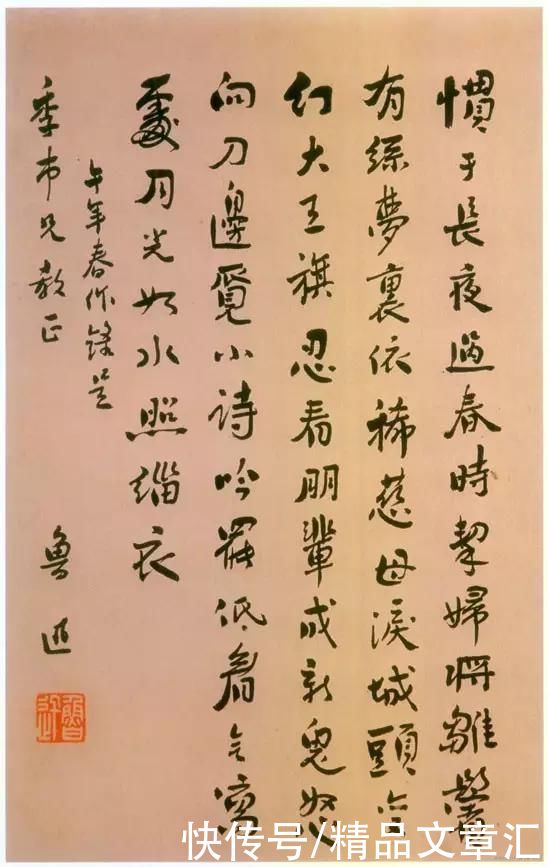 慣于長夜過春時挈婦將雛鬢
有絲夢裏依稀慈母淚城頭變
幻大王旗忍看朋輩成新鬼怒
向刀邊覓小詩吟罷低眉無寫
處月光如水照緇衣
午年春作錄呈
季市兄教正
魯迅
魯迅
快传号/精品文章汇